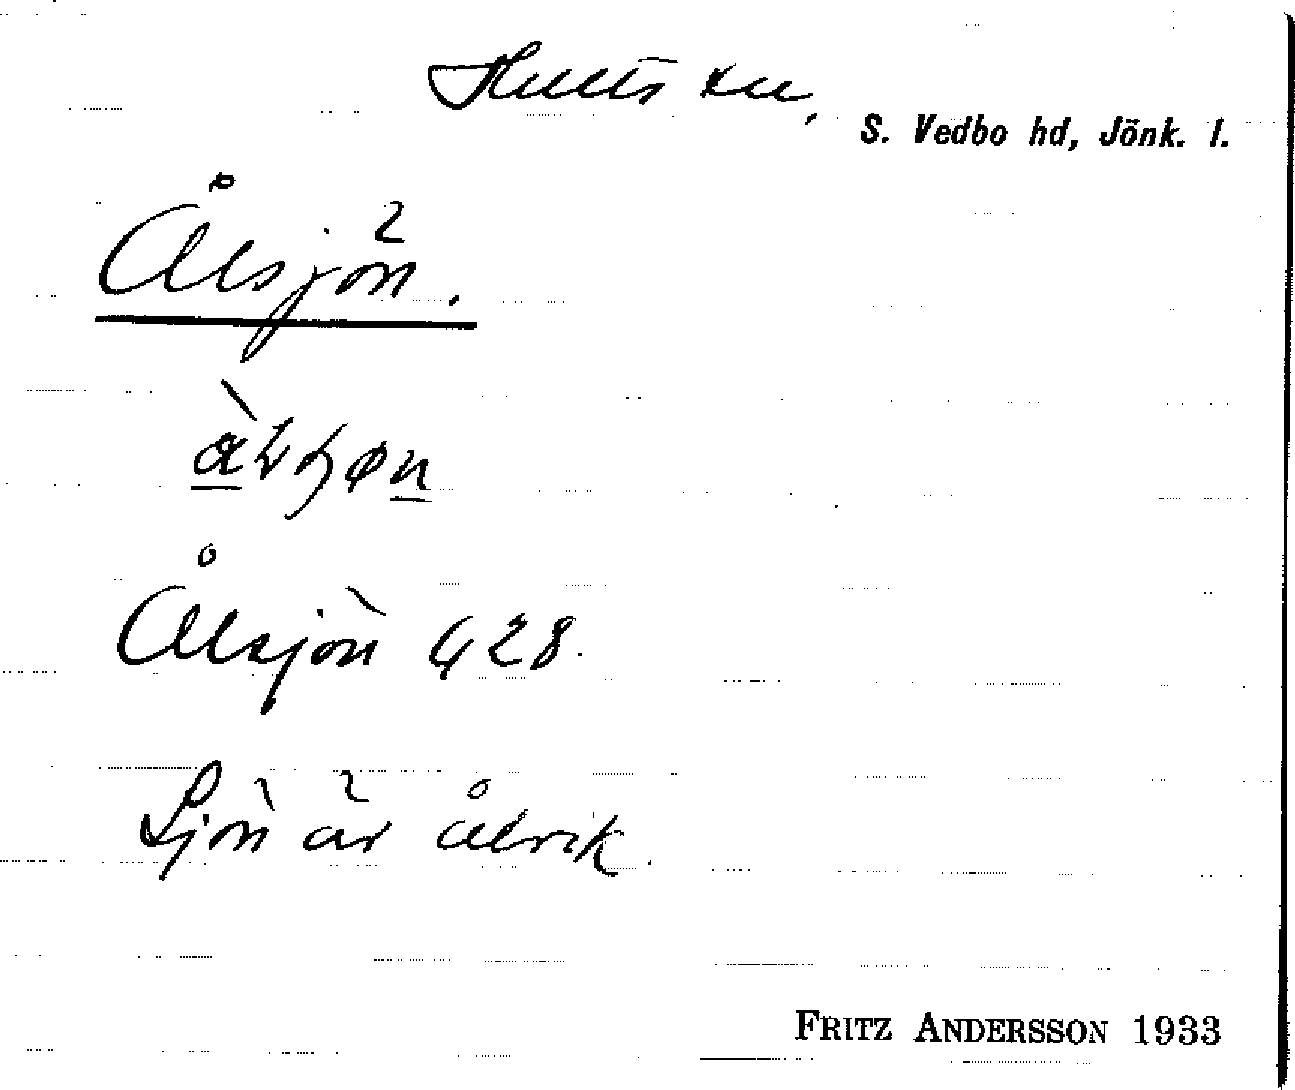 Hults sn,
S. Vedbo hd, Jönk. l.
Ålsjön.
Ålsjön G 28.
Sjön är ålrik.
FRITZ ANDERSSON 1933